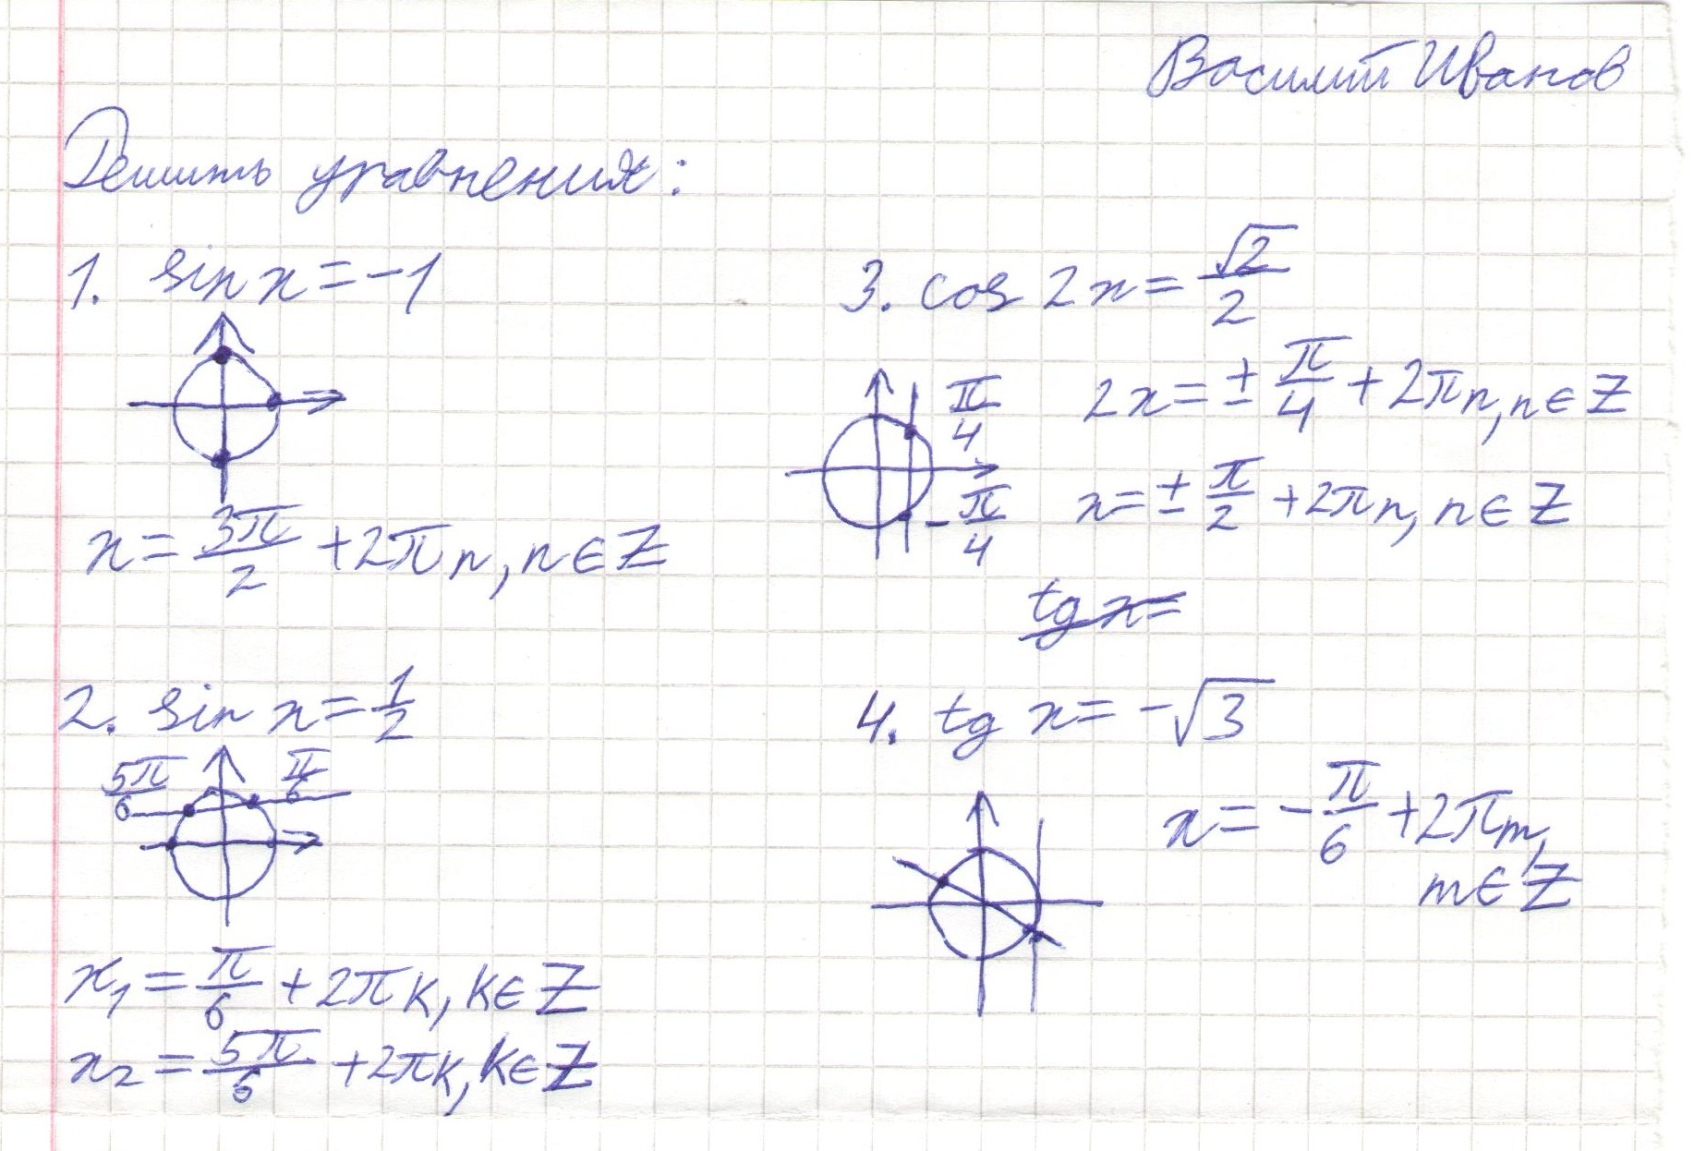 Василий Иванов
Решить уравнения:
1. sin x = -1
x = 3π/2 + 2πn, n ∈ Z
2. sin x = 1/2
5π/6 π/6
x₁ = π/6 + 2πk, k ∈ Z
x₂ = 5π/6 + 2πk, k ∈ Z
3. cos 2x = √2/2
π/4
2x = ± π/4 + 2πn, n ∈ Z
-π/4
x = ± π/2 + 2πn, n ∈ Z
tg x =
4. tg x = -√3
x = - π/6 + 2πm,
m ∈ Z